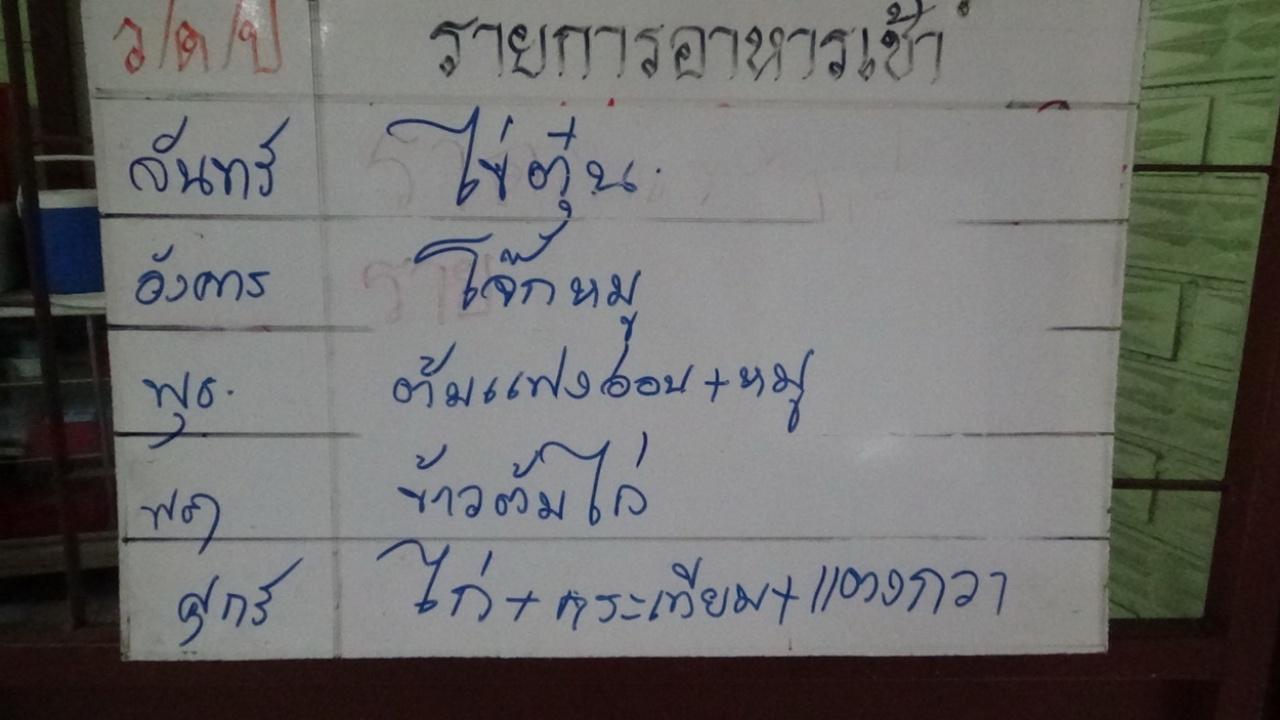 ว/ด/ป รายการอาหารเช้า
จันทร์ ไข่ตุ๋น
อังคาร โจ๊กหมู
พุธ. ต้มแฟงอ่อน+หมู
พฤ ข้าวต้มไก่
ศุกร์ ไก่+กระเทียม+แตงกวา